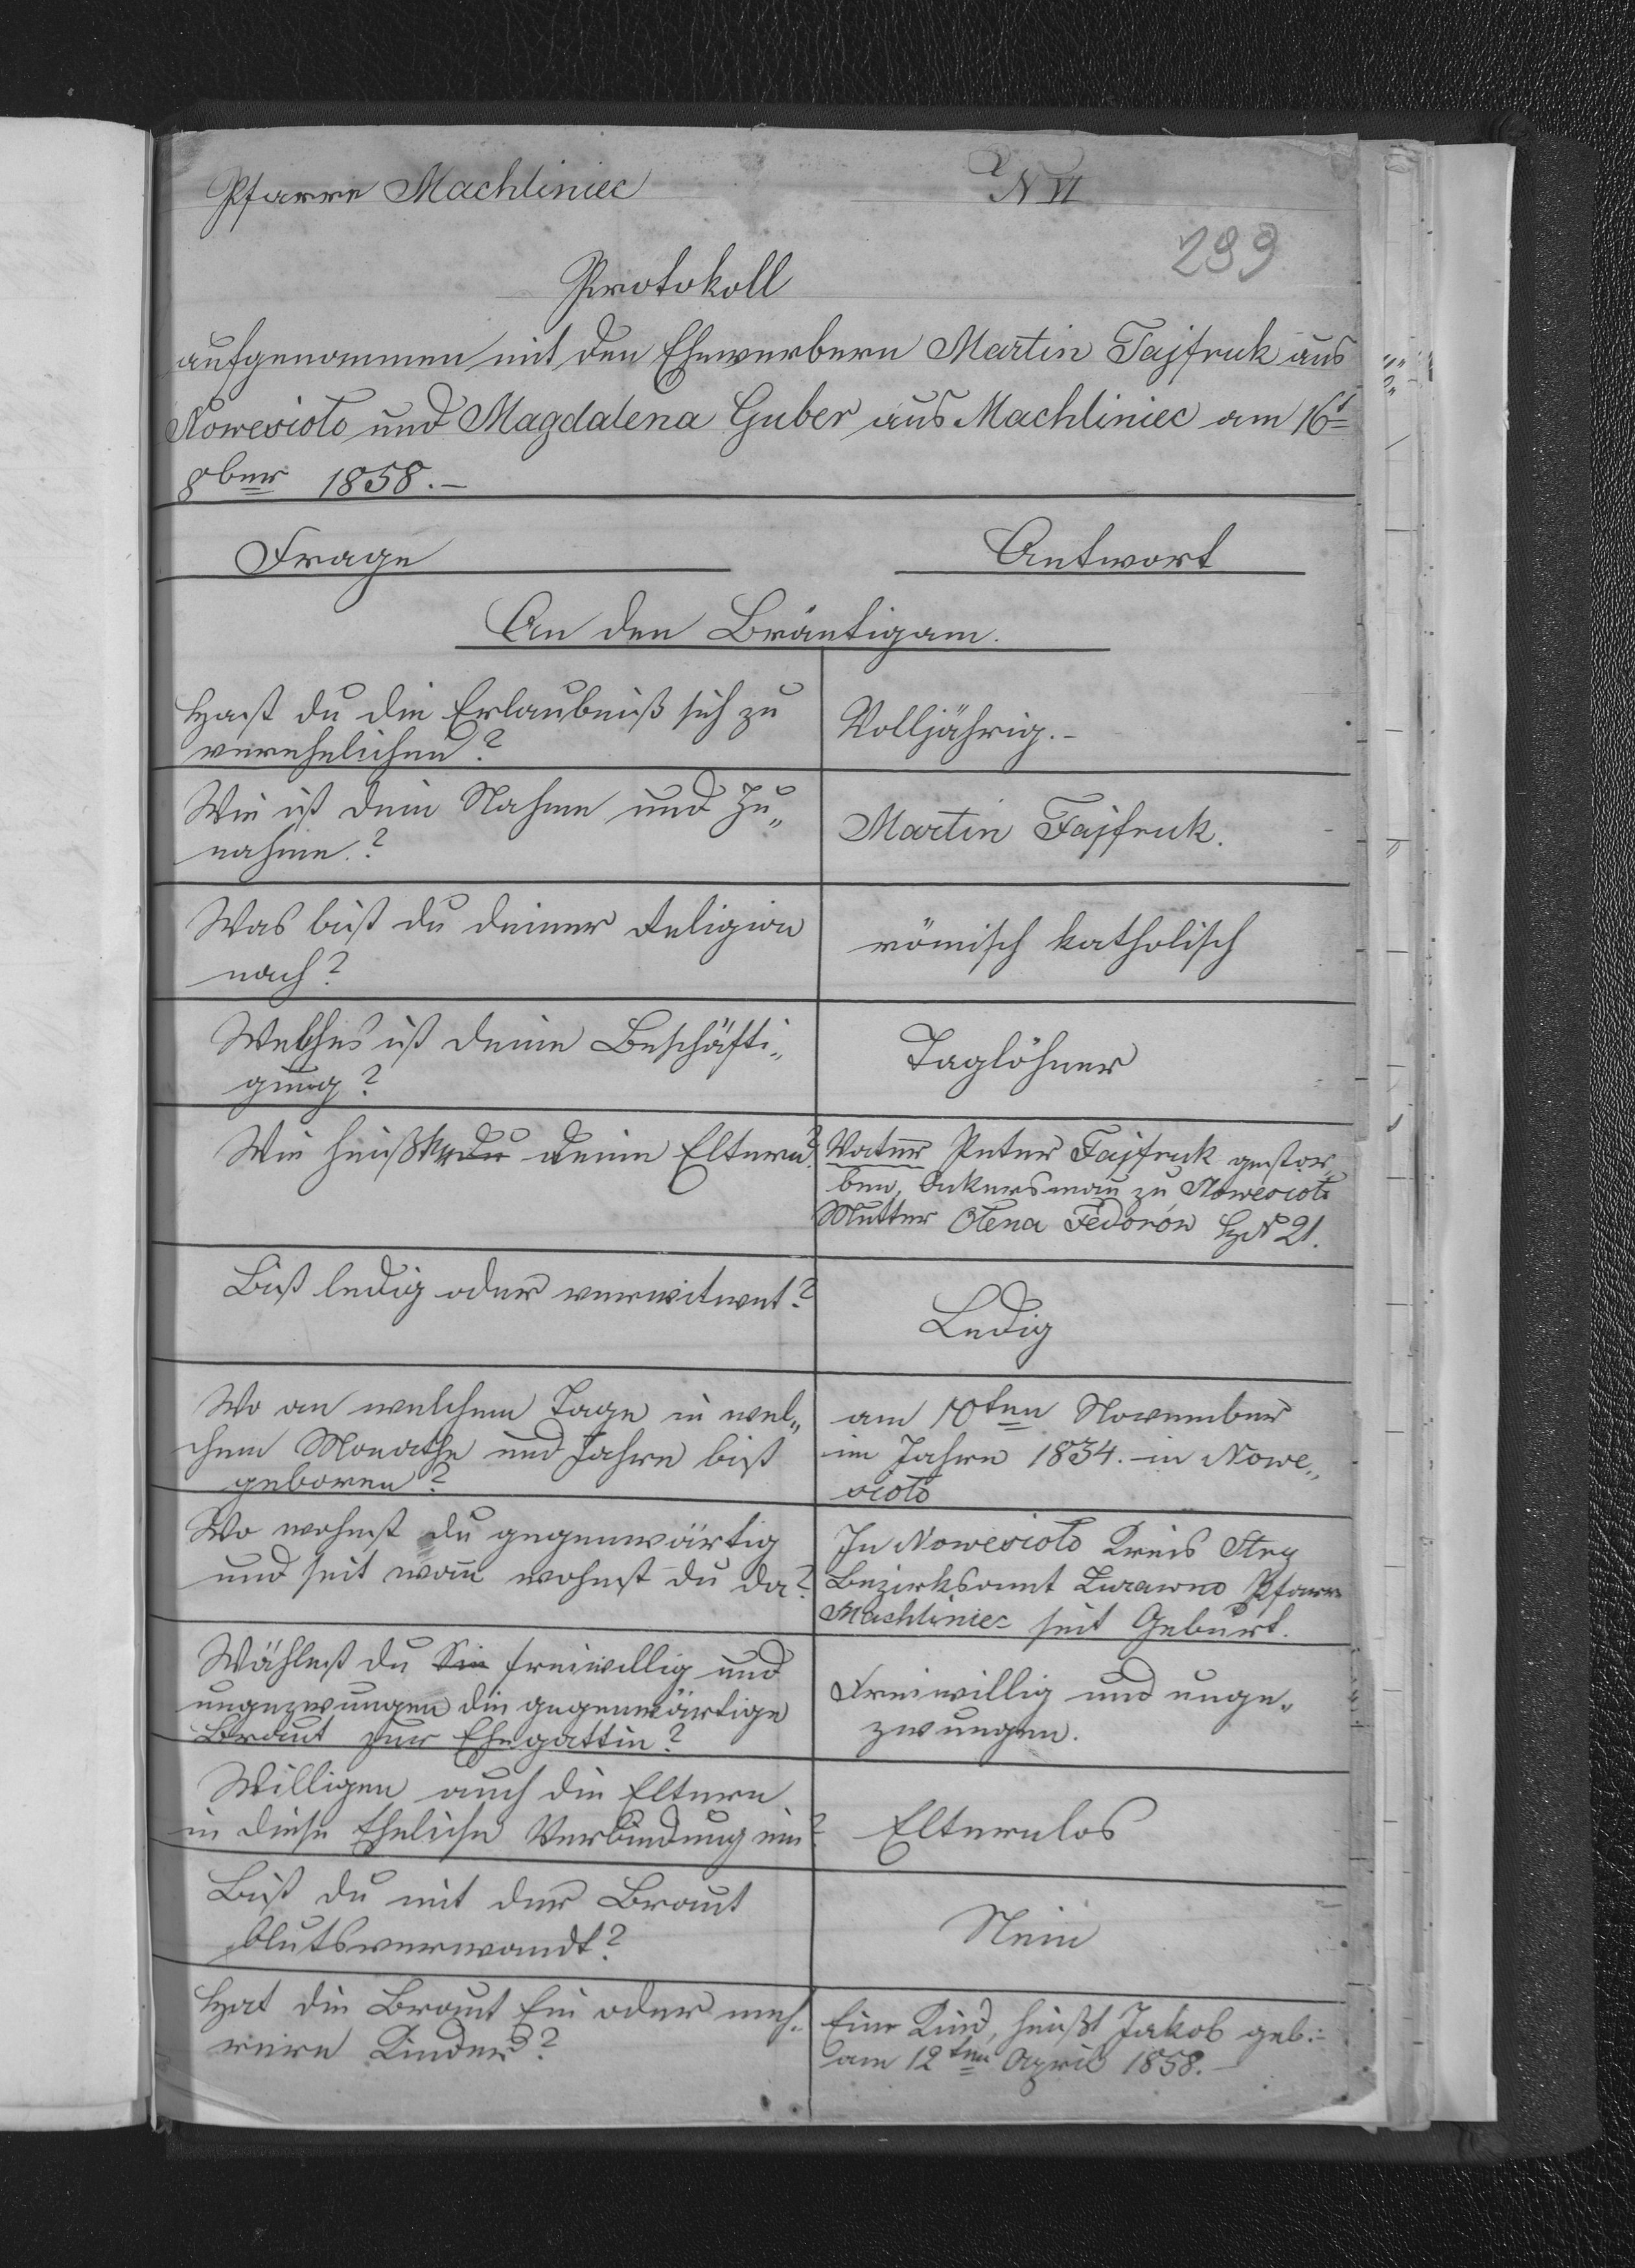 Pfarre Machliniec
N VI
299
Protokoll
aufgenommen mit den Ehewerbern Martin Fajfruk aus
Nowesioło und Magdalena Guber aus Machliniec am 16t
8ber 1858.-
Frage
Antwort
An den Bräutigam.
Hast du die Erlaubniß sich zu
verehelichen?
Volljährig.-
Wie ist dein Nahme und Zu„
nahme.?
Martin Fajfruk.
Was bist du deiner Religion
nach?
römisch katholisch
Welches ist deine Beschäfti„
gung?
Taglöhner
Wie heißen du deine Eltern?
Vater Peter Fajfruk gestor„
ben, Ackersmañ zu Nowesioło
Mutter Olena Fedorów HzN 21.
Bist ledig oder verwitwet?
Ledig
Wo an welchem Tage in wel„
chem Monathe und Jahre bist
geboren?
am 10ten November
im Jahre 1834. in Nowe„
sioło
Wo wohnst du gegenwärtig
und seit wañ wohnst du da?
In Nowesioło Kreis Stry
Bezirksamt Żurawno Pfarre
Machliniec seit Geburt.
Wählest du Sie freiwillig und
ungezwungen die gegenwärtige
Braut zur Ehegattin?
Freiwillig und unge„
zwungen.
Willigen auch die Eltern
in diese Eheliche Verbindung ein?
Elternlos
Bist du mit der Braut
blutsverwandt?
Nein
Hat die Braut Ein oder meh„
reire Kinder?
Eine Kind, heißt Jakob geb:-
am 12ten April 1858.-